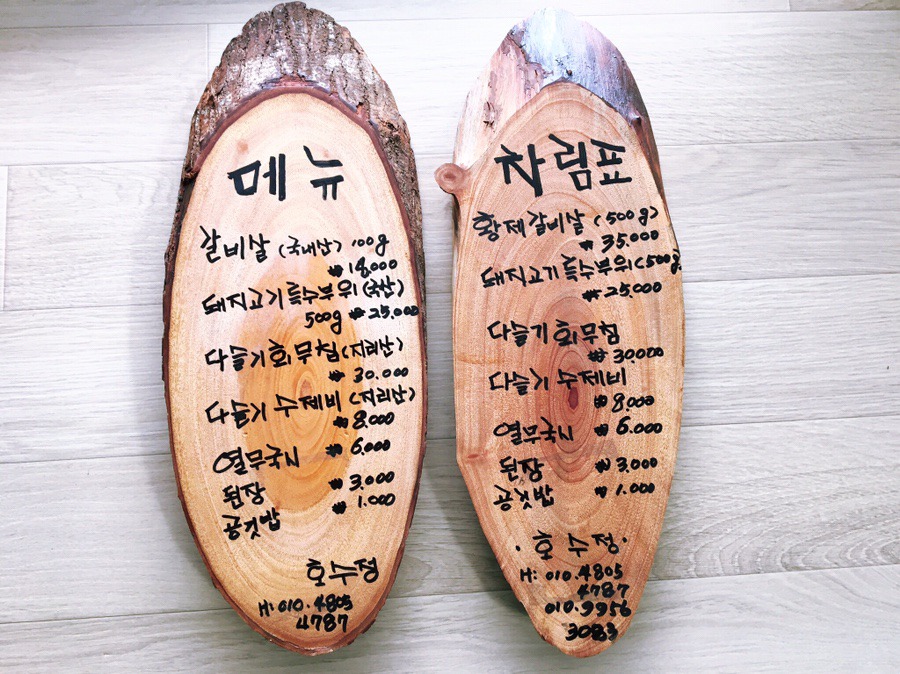 메뉴
갈비살 (국내산) 100g
₩ 18.000
돼지고기특수부위(국산)
500g ₩ 25.000
다슬기회무침(지리산)
₩ 30.000
다슬기 수제비 (지리산)
₩ 8.000
열무국시 ₩ 6.000
된장 ₩ 3.000
공깃밥 ₩ 1.000
호수정
H: 010.4805
4787
차림표
황제갈비살 (500g)
₩ 35.000
돼지고기특수부위(500g)
₩ 25.000
다슬기 회무침
₩ 30.000
다슬기 수제비
₩ 8.000
열무국시 ₩ 6.000
된장 ₩ 3.000
공깃밥 ₩ 1.000
· 호수정·
H: 010.4805
4787
010.9956
3083